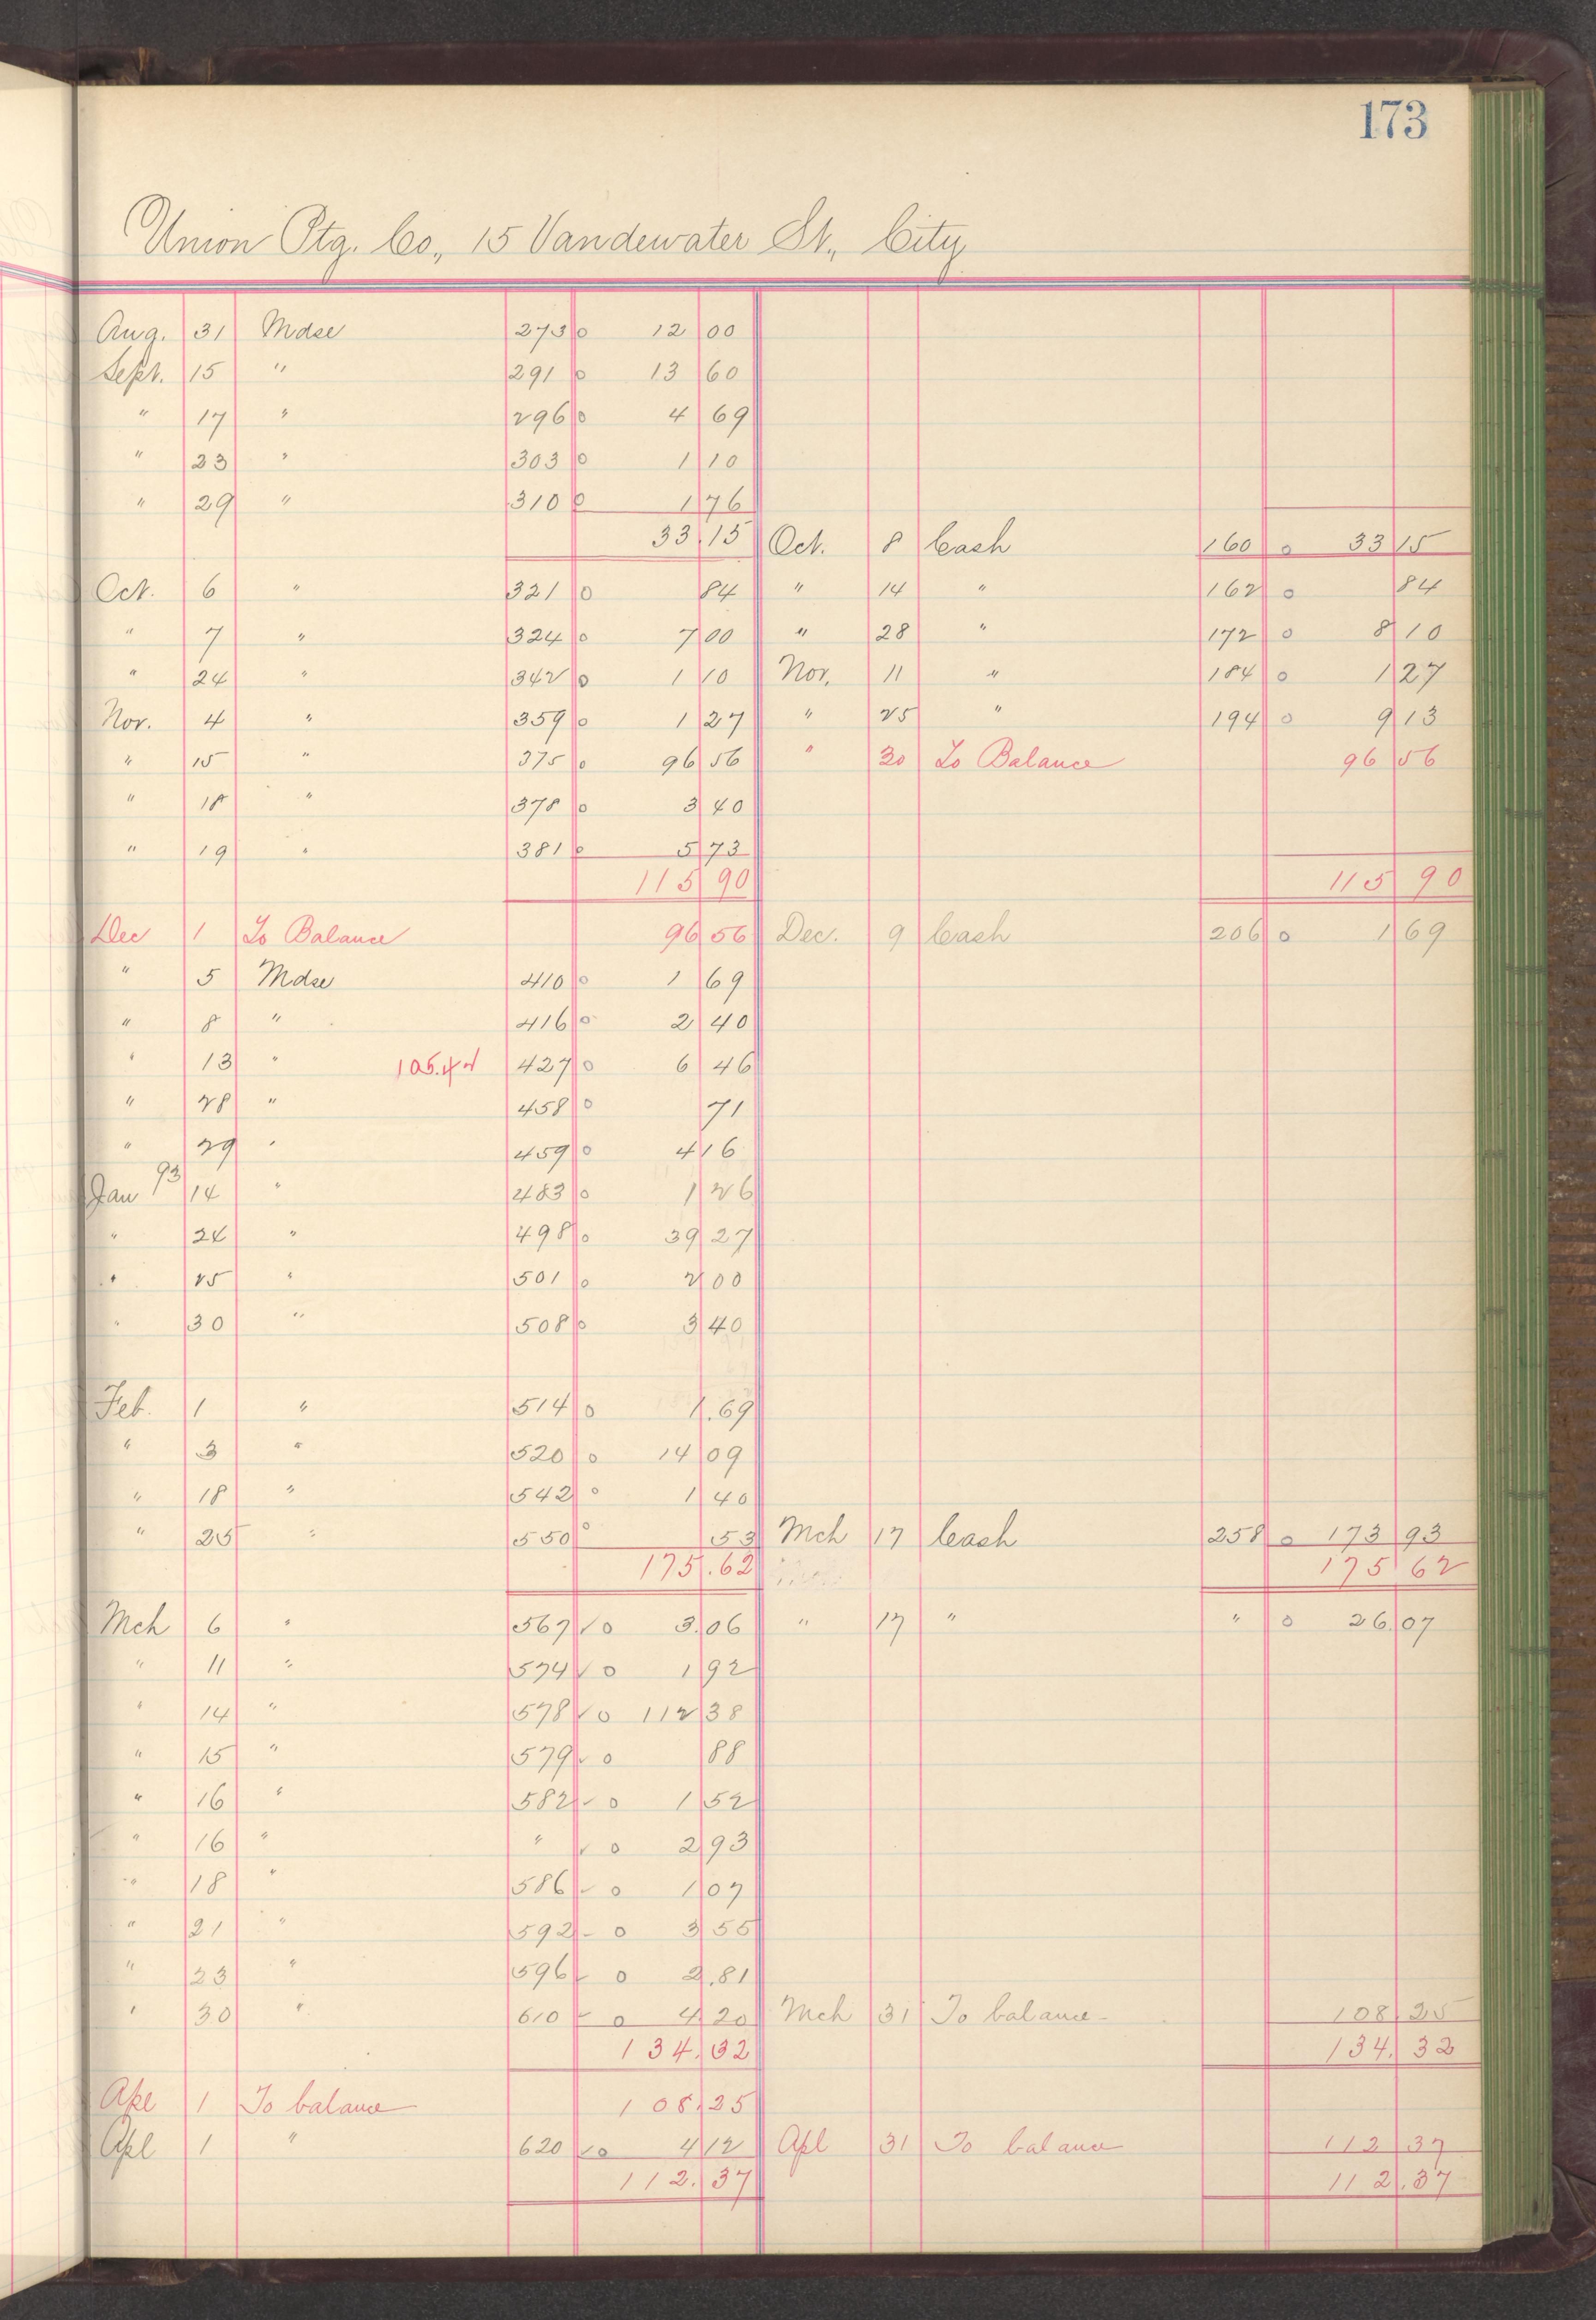 173
Union Ptg. Co., 15 Vandewater St., City
Aug. 31 Mdse 273 o 12 00
Sept. 15 " 291 o 13 60
" 17 " 296 o 4 69
" 23 " 303 o 1 10
" 29 " 310 o 1 76
33.15 Oct. 8 Cash 160 o 33 15
Oct. 6 " 321 o 84 " 14 " 162 o 84
" 7 " 324 o 7 00 " 28 " 172 o 8 10
" 24 " 342 o 1 10 Nov. 11 " 184 o 1 27
Nov. 4 " 359 o 1 27 " 25 " 194 o 9 13
" 15 " 375 o 96 56 " 30 To Balance 96 56
" 18 " 378 o 3 40
" 19 " 381 o 5 73
115 90 115 90
Dec 1 To Balance 96 56 Dec. 9 Cash 206 o 1 69
" 5 Mdse 410 o 1 69
" 8 " 416 o 2 40
" 13 " 105.42 427 o 6 46
" 28 " 458 o 71
" 29 " 459 o 4 16
Jan 93 14 " 483 o 1 26
" 24 " 498 o 39 27
" 25 " 501 o 2 00
" 30 " 508 o 3 40
Feb. 1 " 514 o 1.69
" 3 " 520 o 14 09
" 18 " 542 o 1 40
" 25 " 550 o 53 Mch 17 Cash 258 o 173 93
175.62 175 62
Mch 6 " 567 ✓ o 3.06 " 17 " " o 26.07
" 11 " 574 ✓ o 1 92
" 14 " 578 ✓ o 112 38
" 15 " 579 ✓ o 88
" 16 " 582 ✓ o 1 52
" 16 " " ✓ o 2 93
" 18 " 586 ✓ o 1 07
" 21 " 592 ✓ o 3 55
" 23 " 596 ✓ o 2.81
" 30 " 610 ✓ o 4 20 Mch 31 To balance 108.25
134.32 134.32
Apl 1 To balance 108.25
Apl 1 " 620 ✓ o 4 12 Apl 31 To balance 112 37
112.37 112.37